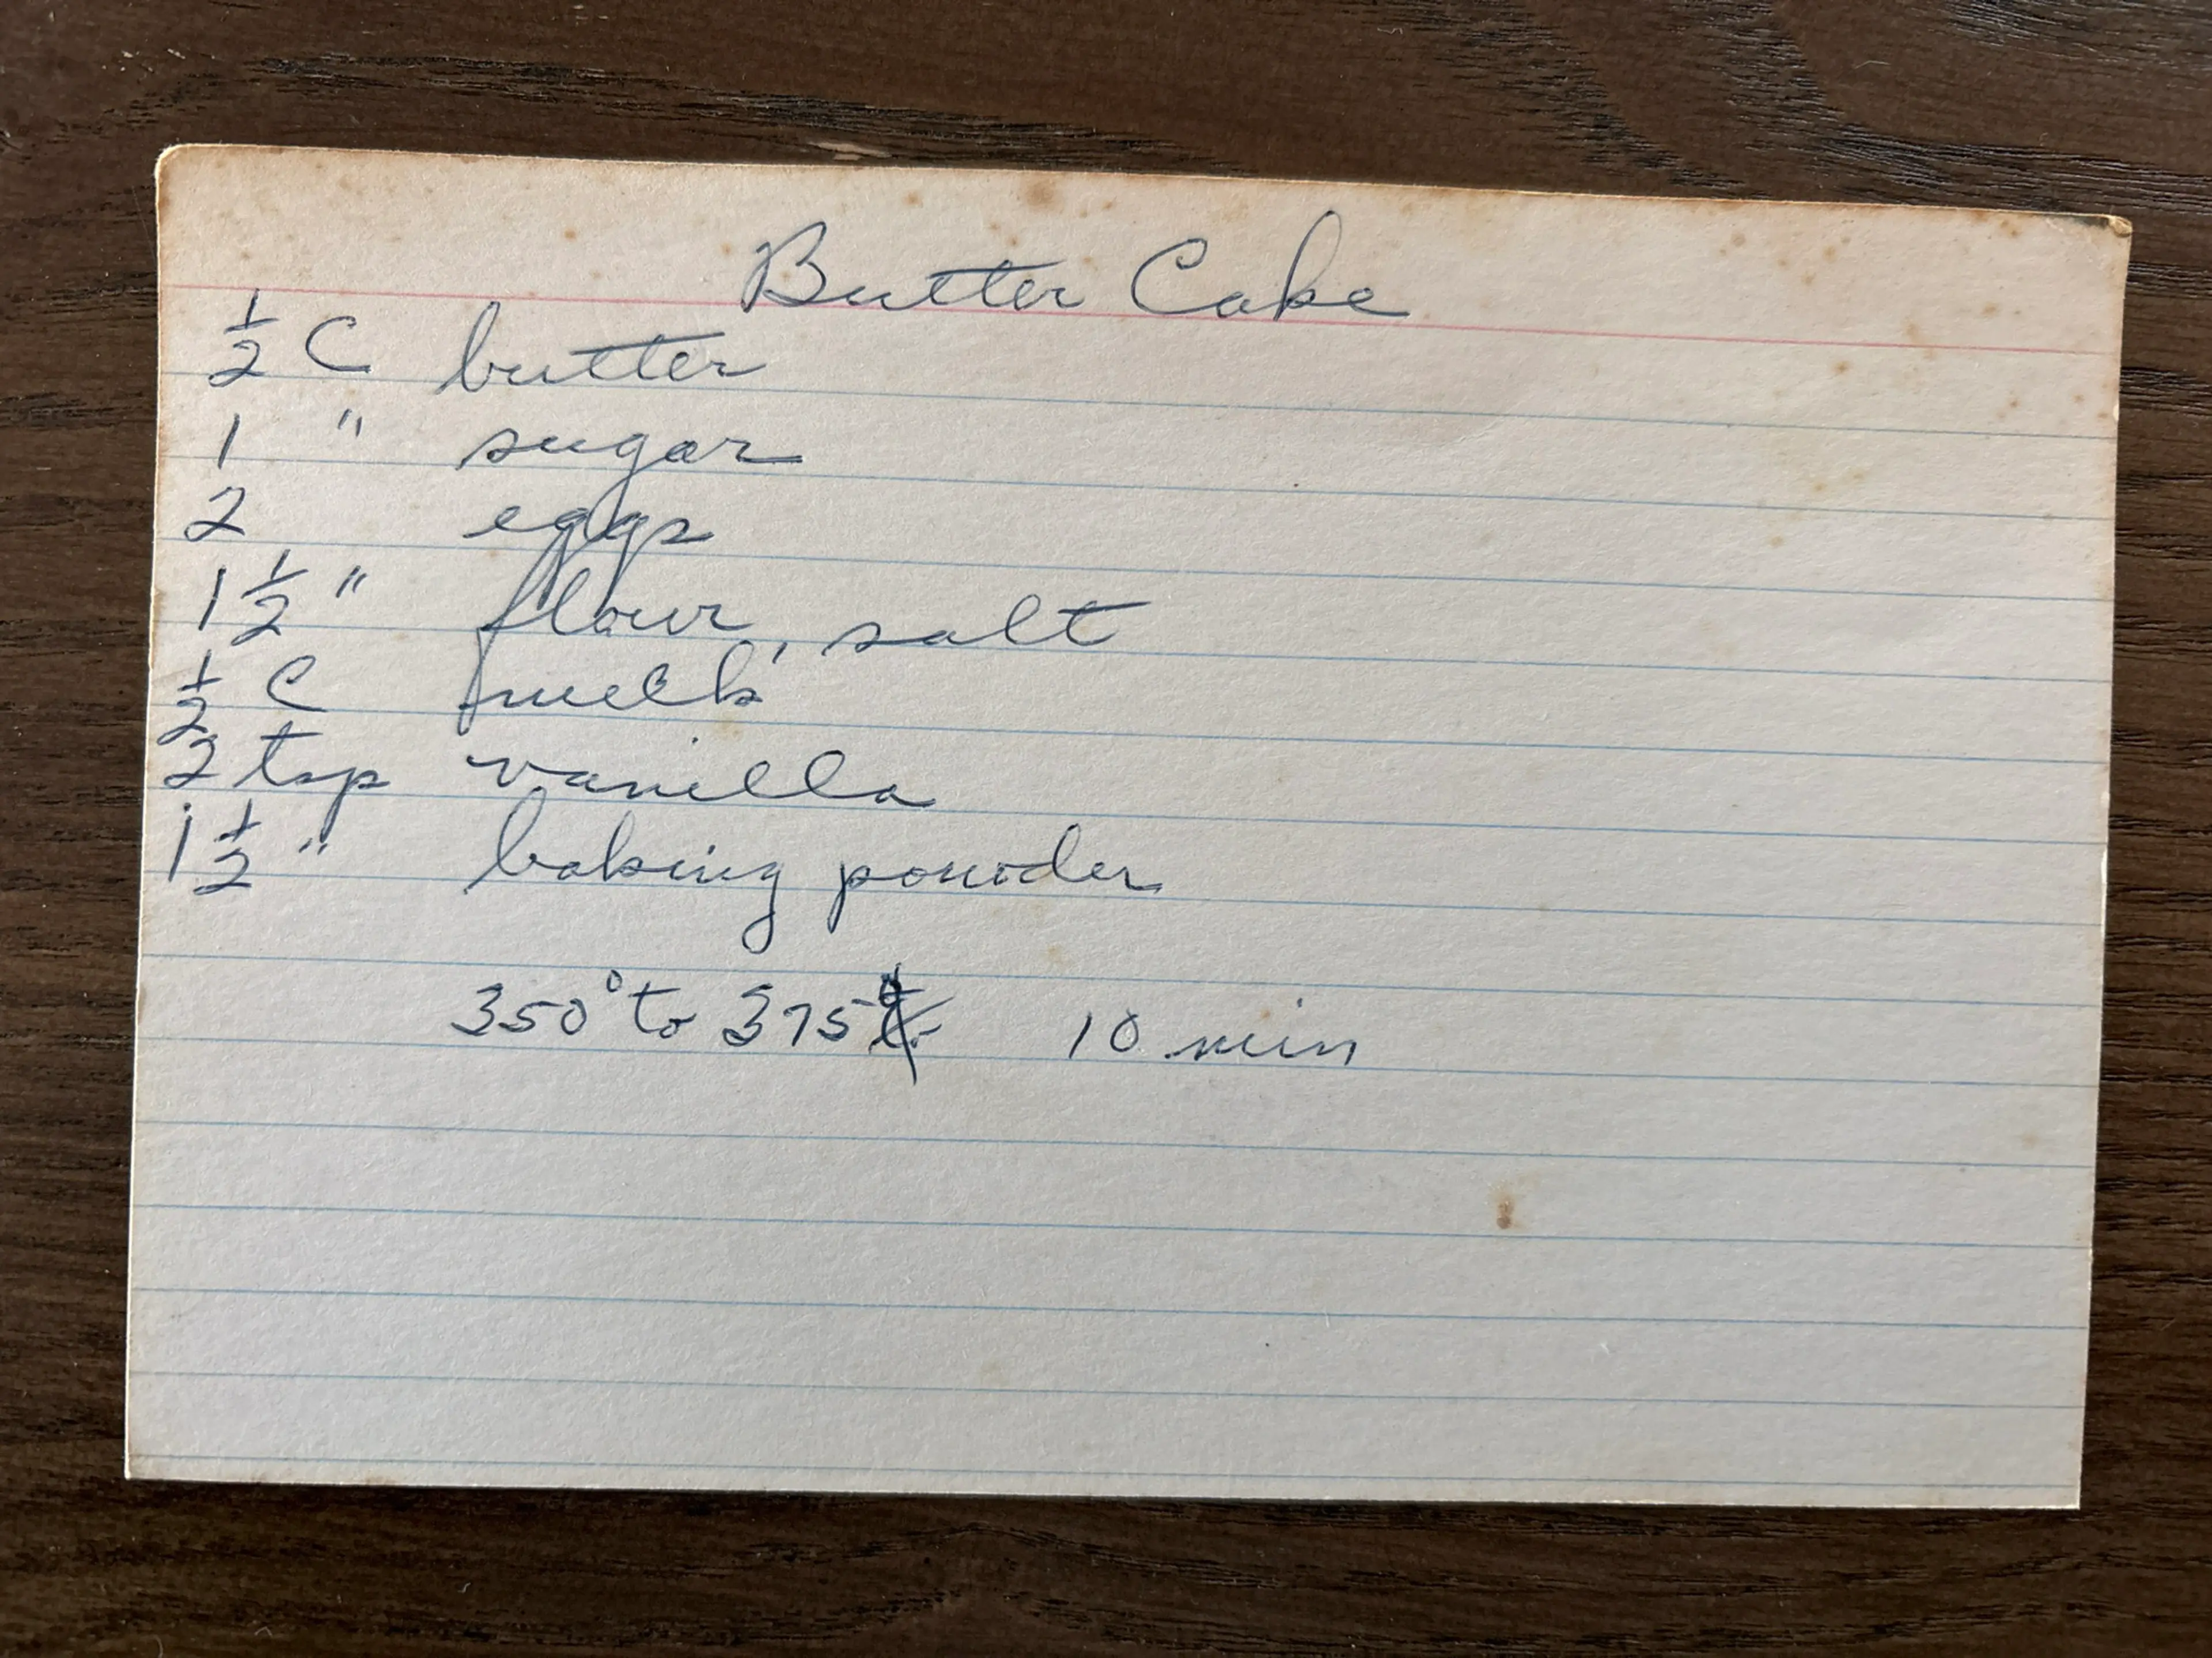 Butter Cake
½ C butter
1 " sugar
2 eggs
1 ½ " flour, salt
½ C milk
2 tsp vanilla
1 ½ " baking powder
350° to 375° 10 min